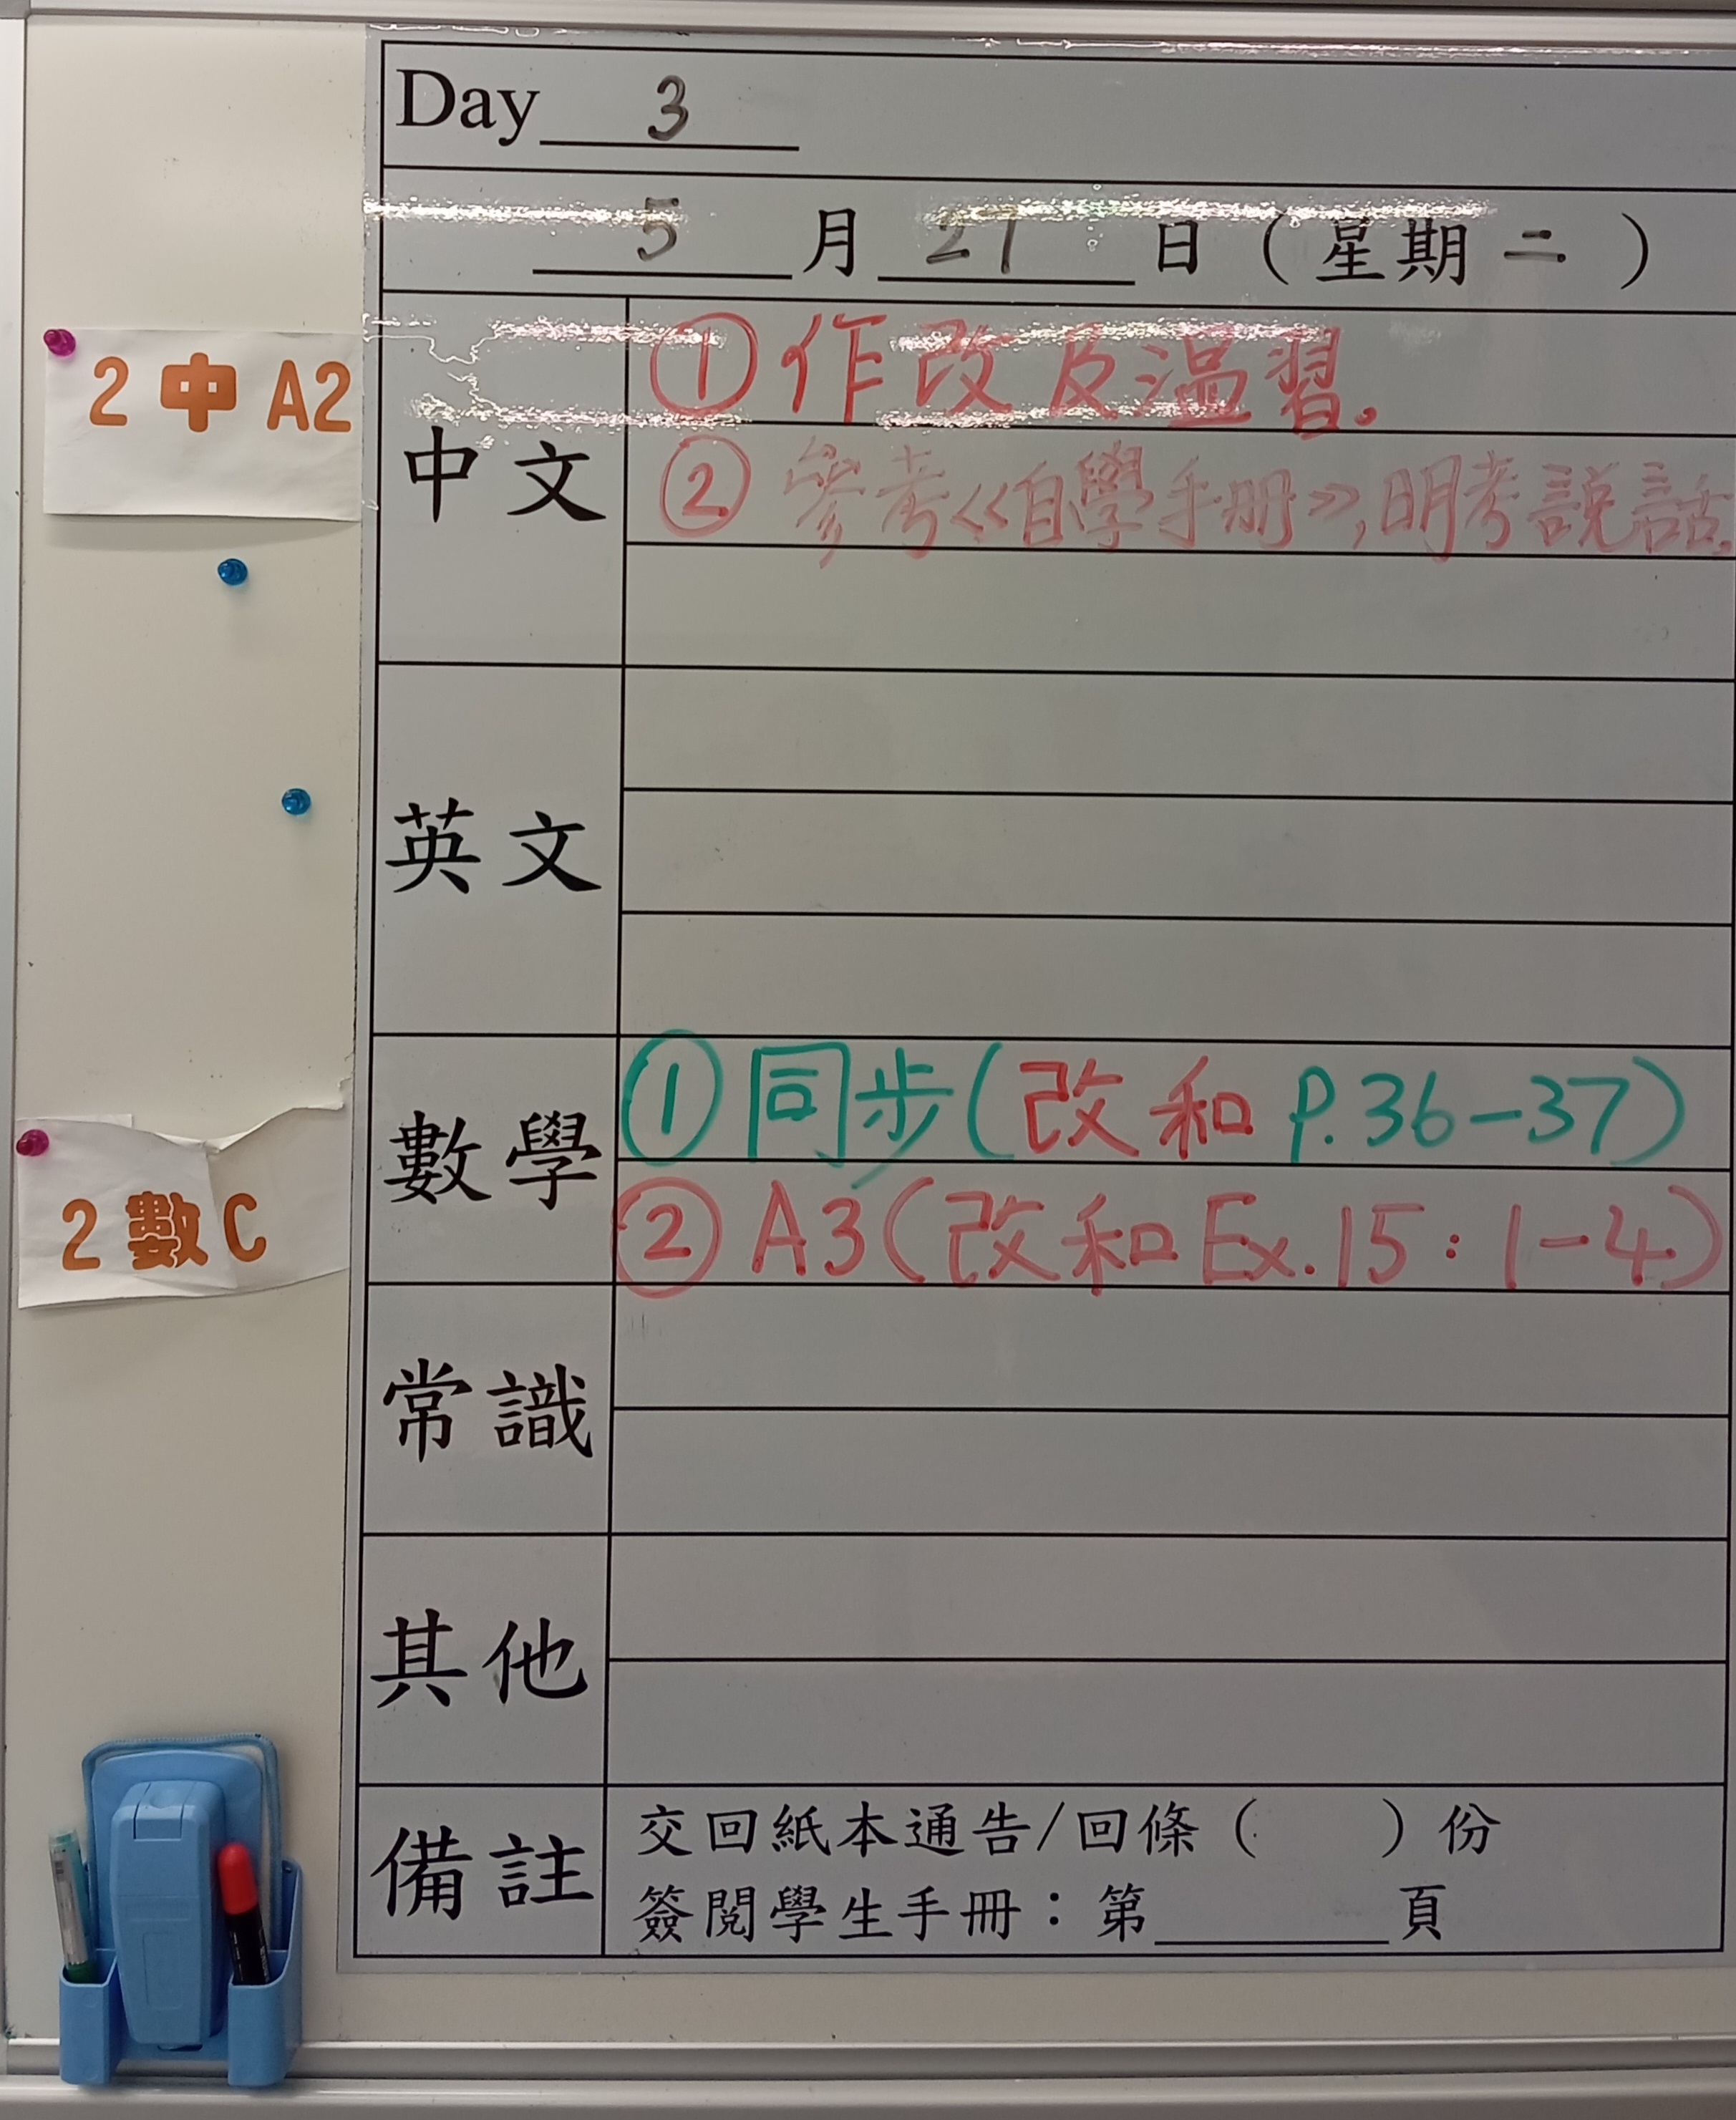 Day 3
5 月 21 日 ( 星期 二 )
2 中 A2
中文
① 作改及溫習.
② 參考《自學手册》,明考説話.
英文
數學
① 同步(改和 P.36-37)
② A3(改和 Ex.15:1-4)
2 數 C
常識
其他
備註
交回紙本通告/回條( )份
簽閱學生手冊:第____頁